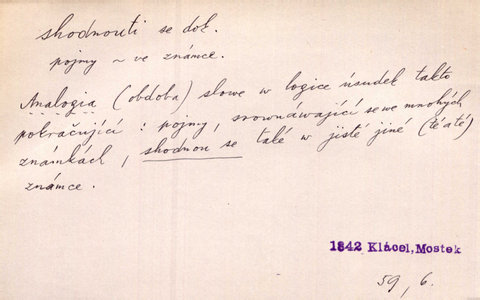 shodnouti se dok.
pojmy ~ ve známce.
Analogia (obdoba) slowe w logice úsudek takto
pokračující: pojmy, srownáwající se we mnohých
známkách, shodnou se také w jisté jiné (té a té)
známce.
1842 Klácel, Mostek
59, 6.